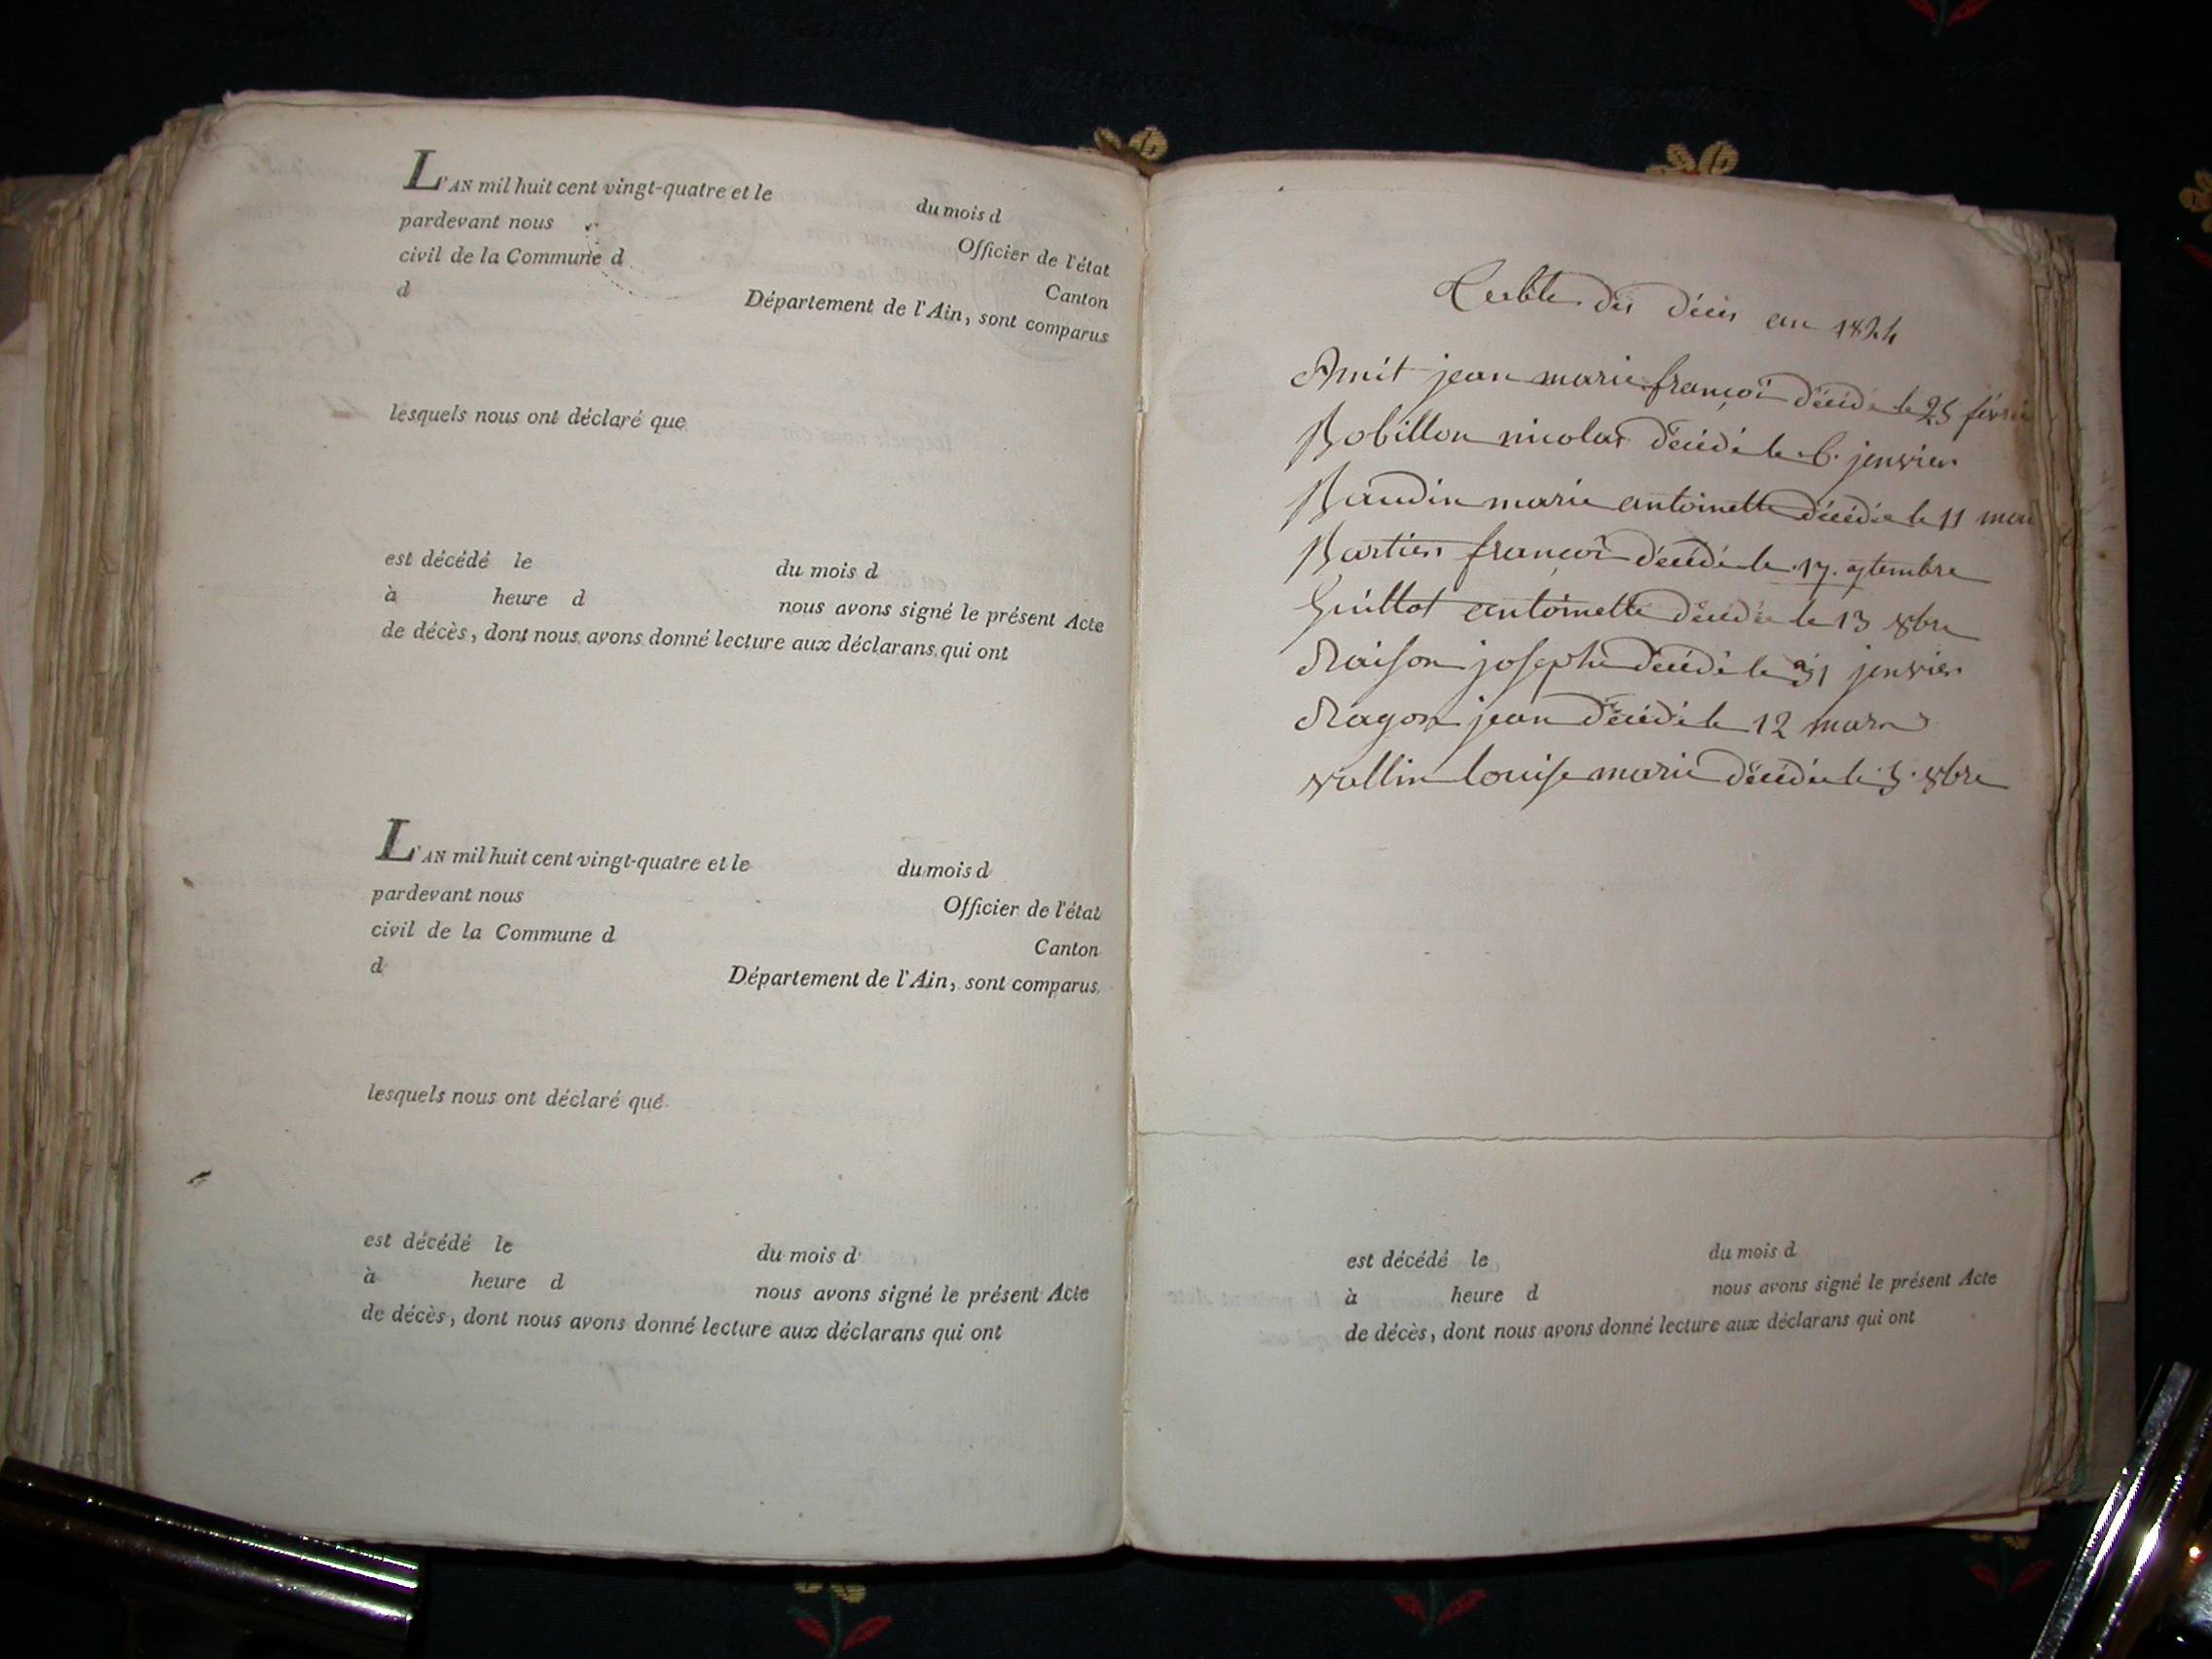 L'AN mil huit cent vingt-quatre et le du mois d
pardevant nous Officier de l'état
civil de la Commune d Canton
d Département de l'Ain, sont comparus
lesquels nous ont déclaré que
est décédé le du mois d
à heure d nous avons signé le présent Acte
de décès, dont nous avons donné lecture aux déclarans qui ont
L'AN mil huit cent vingt-quatre et le du mois d
pardevant nous Officier de l'état
civil de la Commune d Canton
d Département de l'Ain, sont comparus
lesquels nous ont déclaré que
est décédé le du mois d
à heure d nous avons signé le présent Acte
de décès, dont nous avons donné lecture aux déclarans qui ont
des décès en 1824
jean marie françoi décédé le 25
Robillon nicolas décédé le 6. jenvier
marie antoinette décédée le 11
françoi décédé le 17. 7tembre
Guillot antoinette décédée le 13 8bre
joseph décédé le 31 jenvier
jean décédé le 12 mars
vallin louise marie décédée le 3. 8bre
est décédé le du mois d
à heure d nous avons signé le présent Acte
de décès, dont nous avons donné lecture aux déclarans qui ont